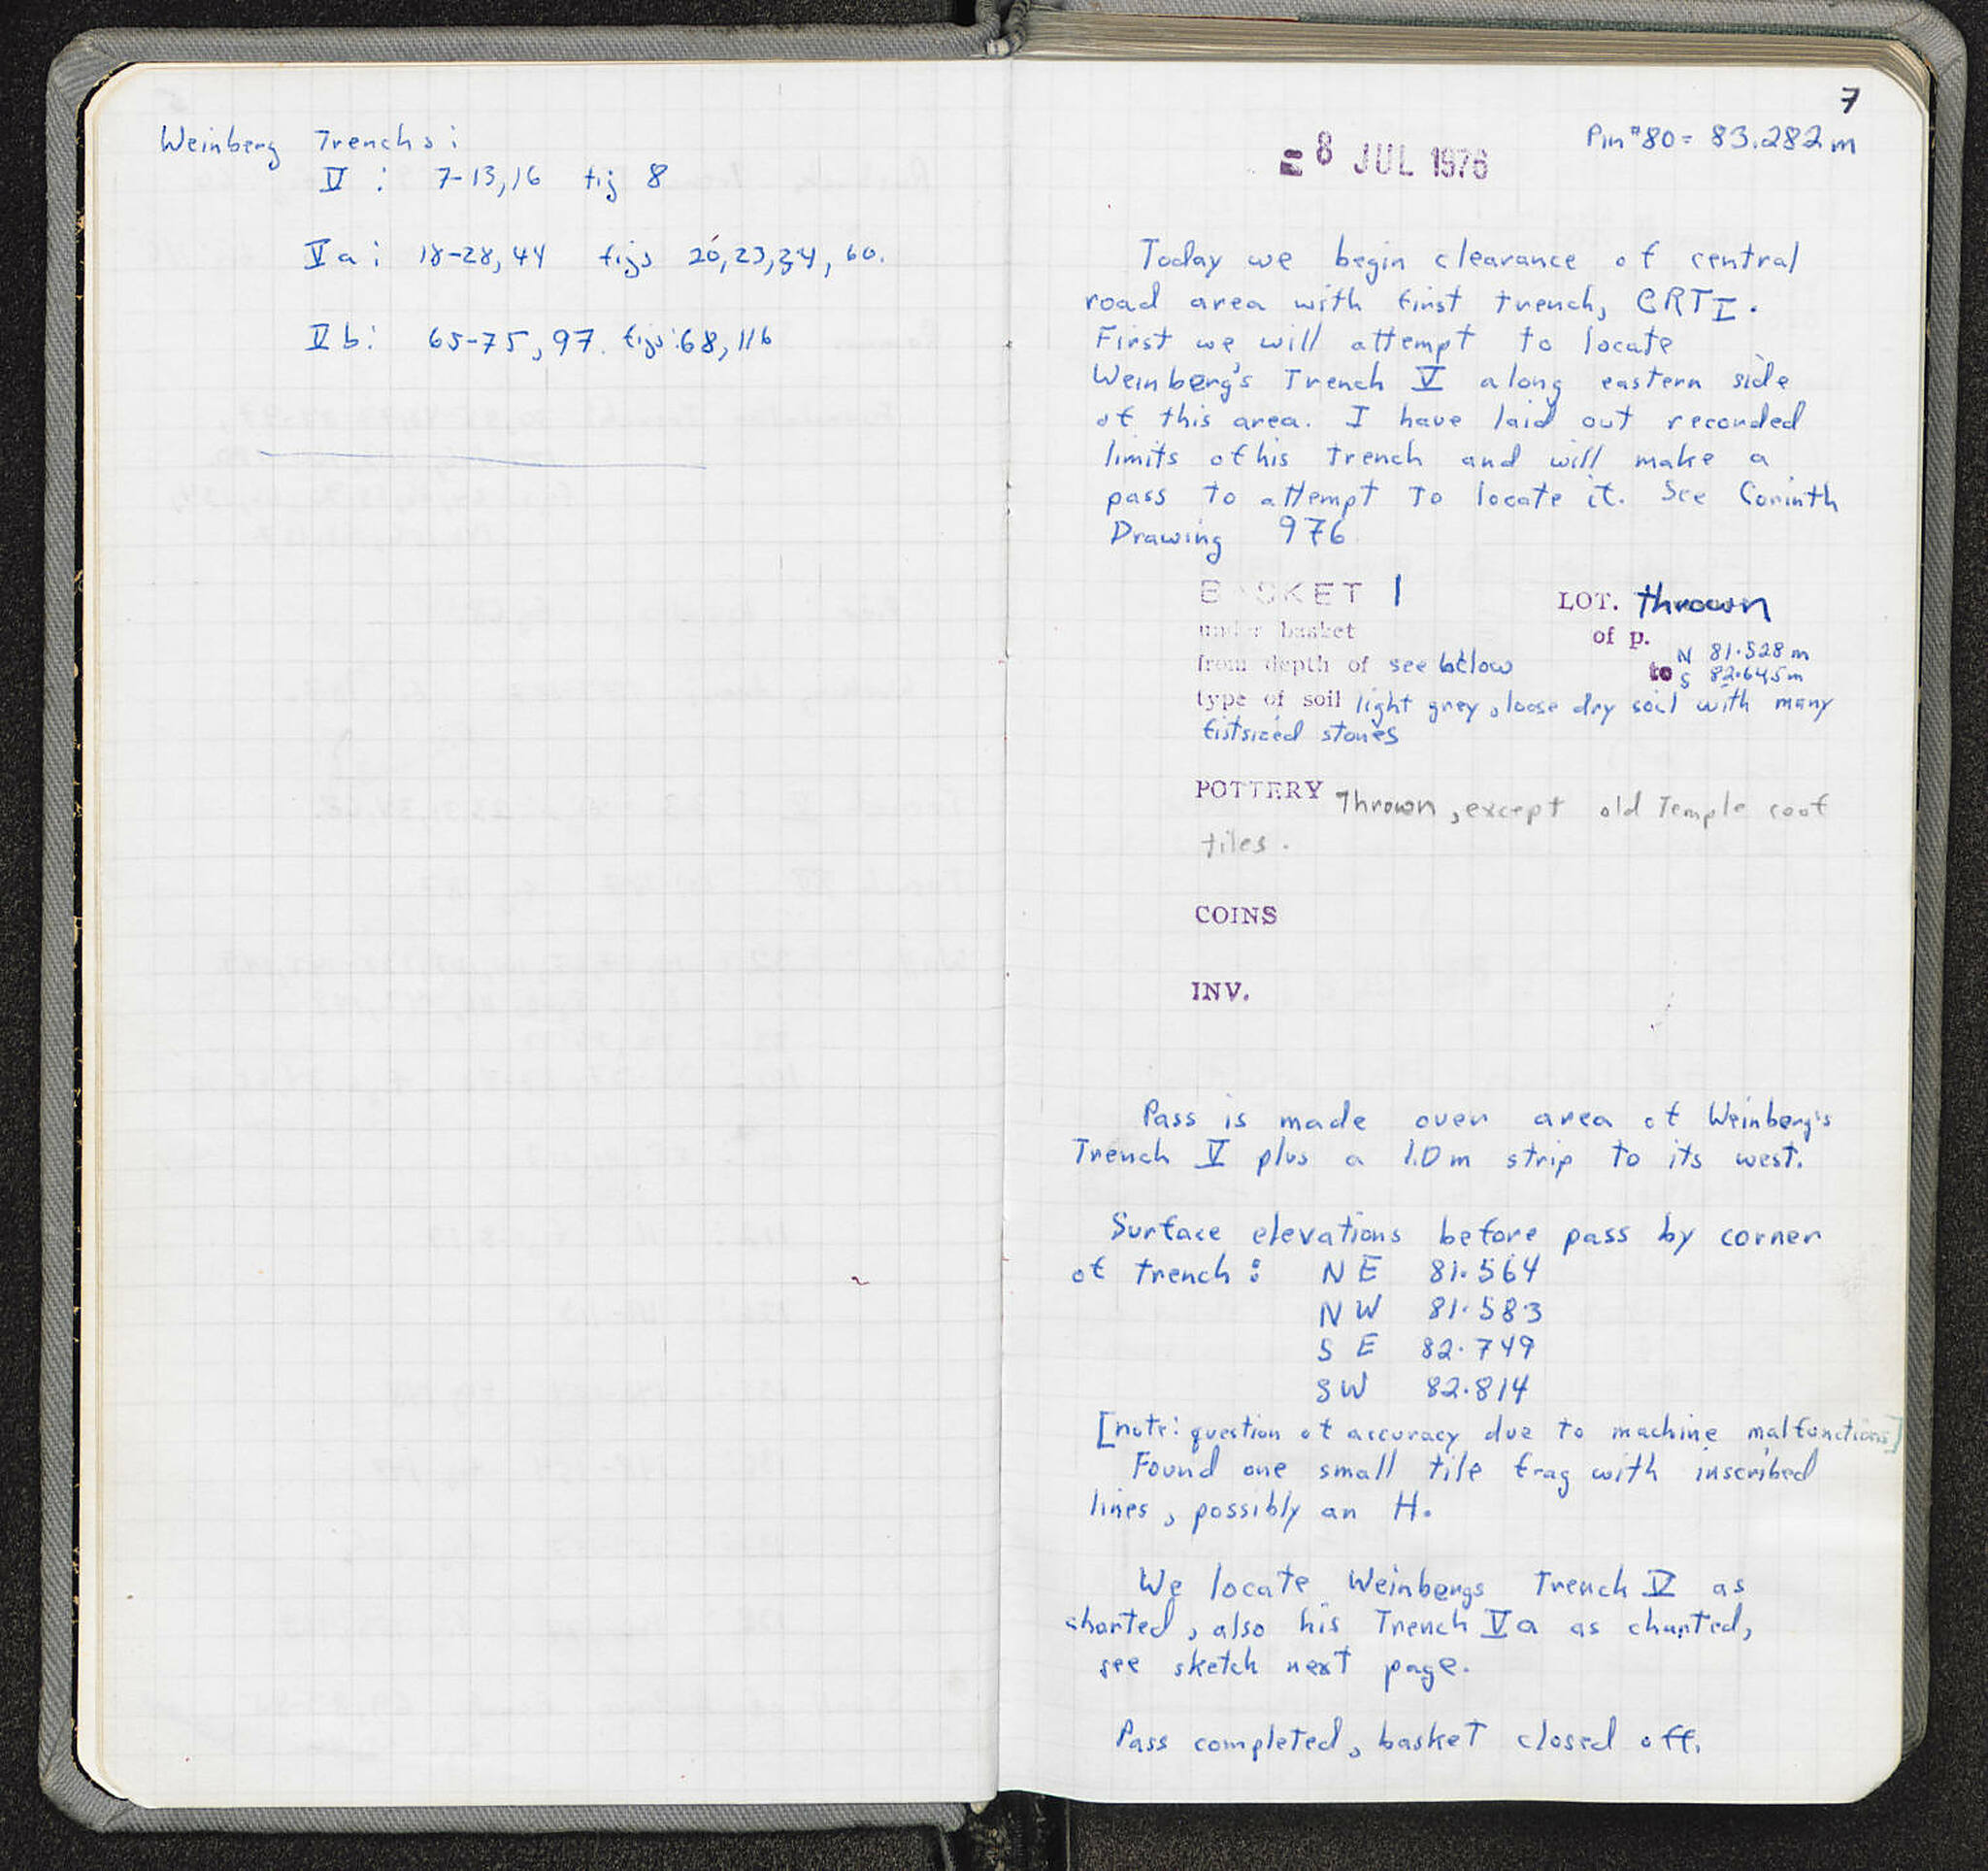 Weinberg Trenchs:
V : 7-13,16 fig 8
Va: 18-28,44 figs 20,23,34, 60.
Vb: 65-75, 97. figs:68, 116
7
Pin #80= 83.282m
8 JUL 1976
Today we begin clearance of central
road area with first trench, CRT I.
First we will attempt to locate
Weinberg's Trench V along eastern side
of this area. I have laid out recorded
limits of his trench and will make a
pass to attempt to locate it. See Corinth
Drawing 976
BASKET 1 LOT. thrown
under basket of p.
from depth of see below to N 81.528m
S 82.645m
type of soil light grey, loose dry soil with many
fistsized stones
POTTERY Thrown, except old Temple roof
tiles.
COINS
INV.
Pass is made over area of Weinberg's
Trench V plus a 1.0m strip to its west.
Surface elevations before pass by corner
of trench: NE 81.564
NW 81.583
SE 82.749
SW 82.814
[note: question of accuracy due to machine malfunctions]
Found one small tile frag with inscribed
lines, possibly an H.
We locate Weinbergs Trench V as
charted, also his Trench Va as charted,
see sketch next page.
Pass completed, basket closed off.